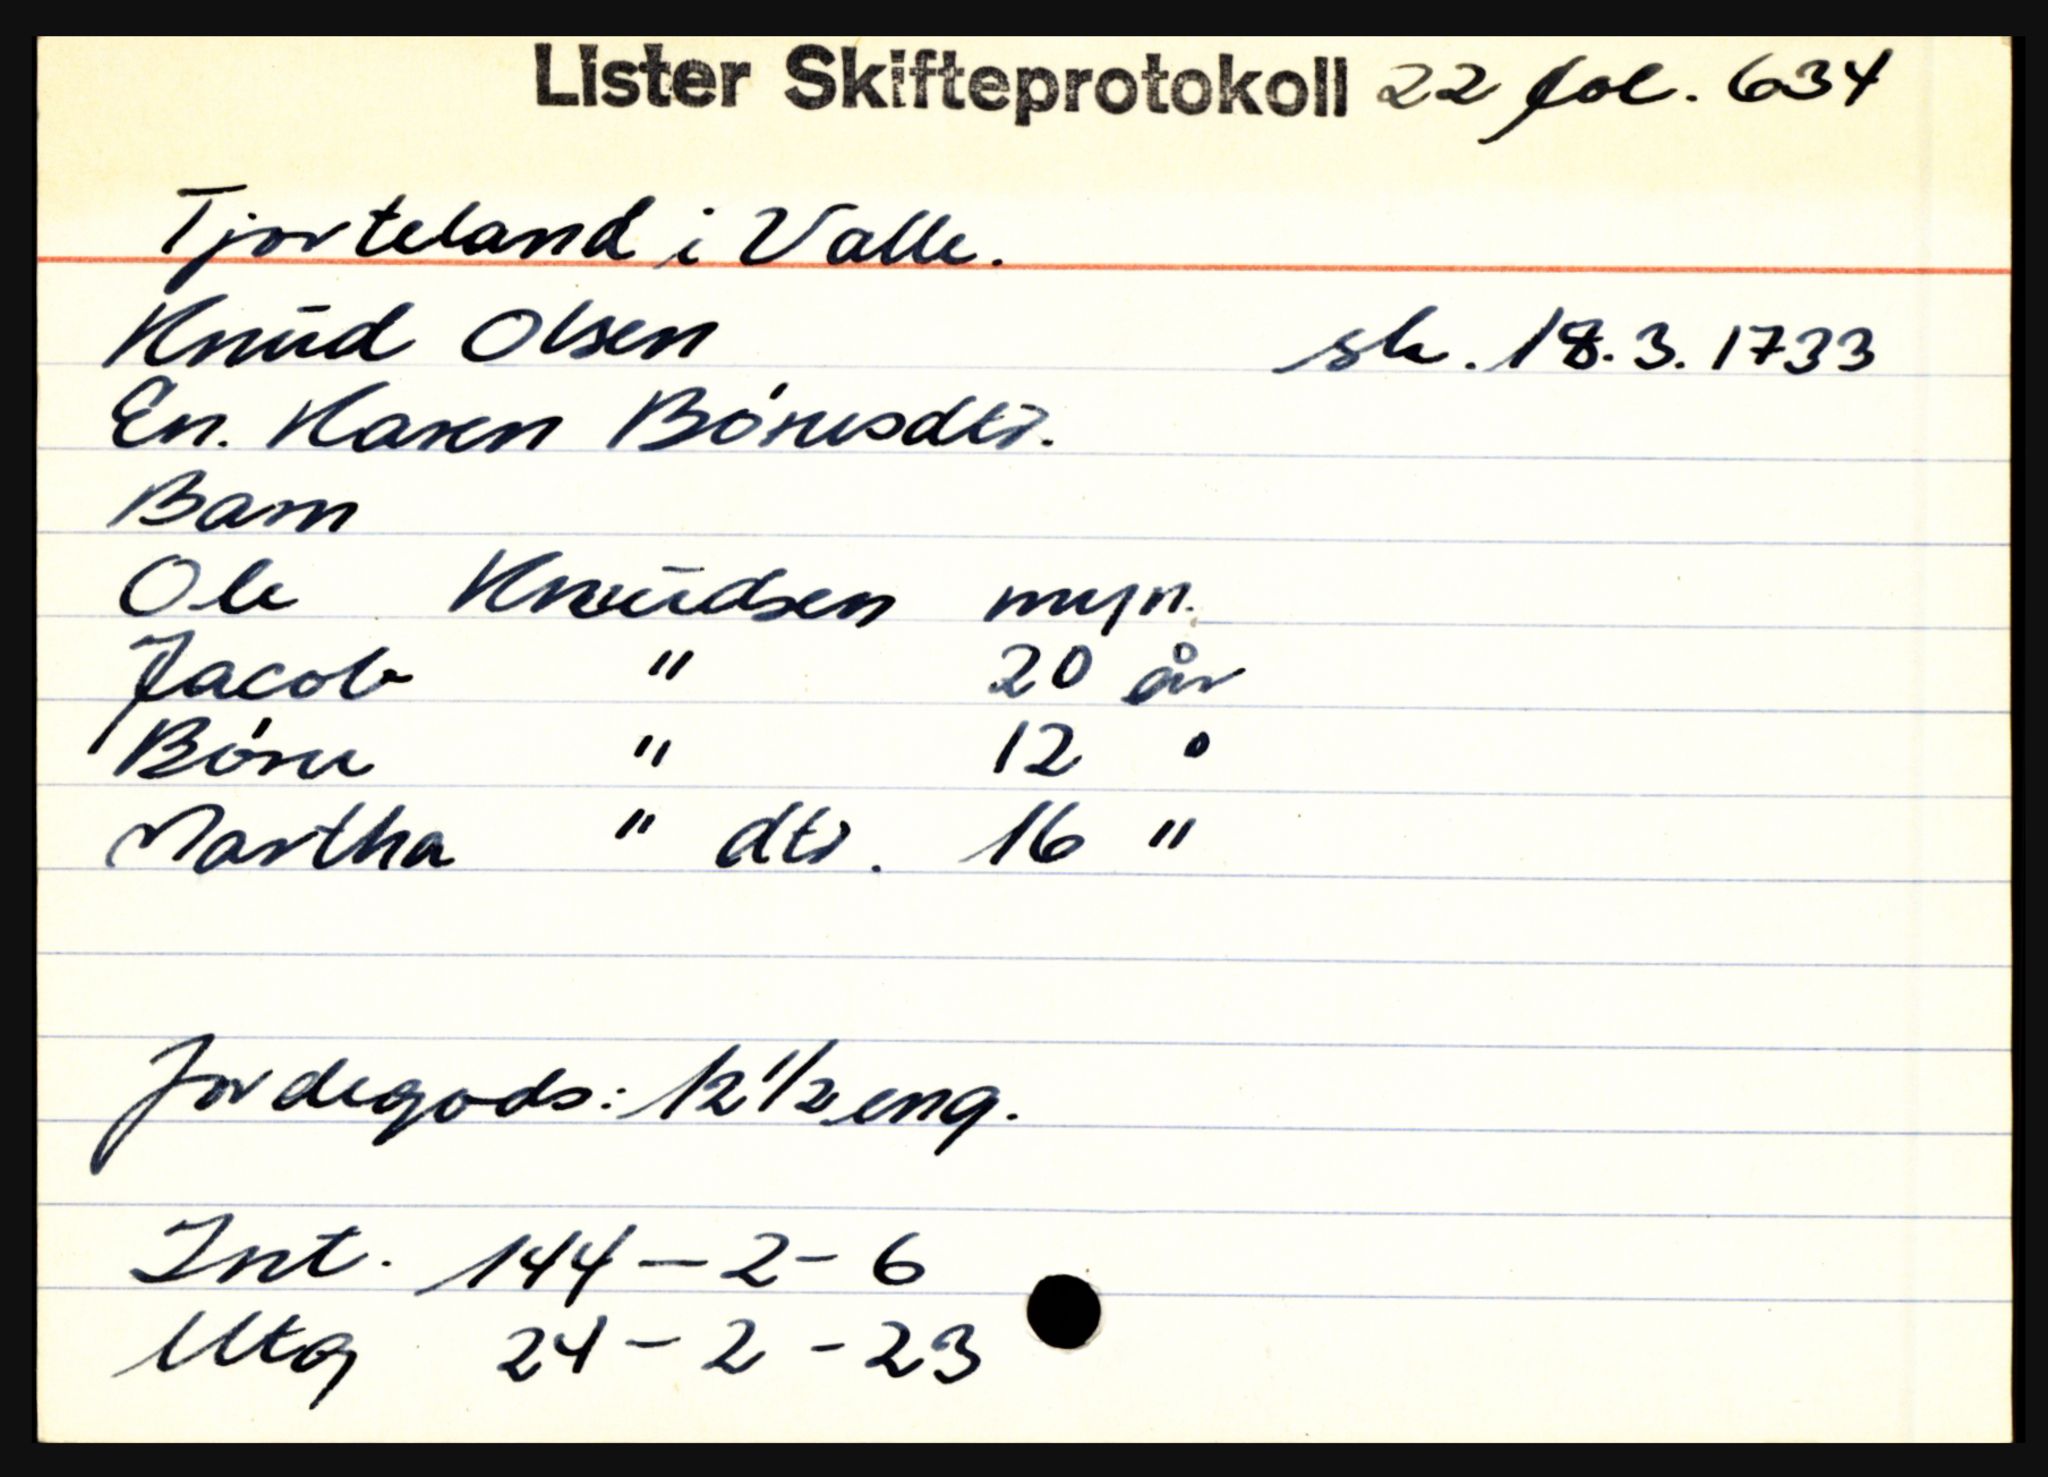 Lister Skifteprotokoll 22 fol. 634
Tjorteland i Valle.
Knud Olsen sk. 18.3.1733
En. Karen Bóruesdtr.
Barn
Ole Knudsen myn.
Jacob " 20 år
Bórue " 12 "
Martha " dtr. 16 "
Jordegods: 12 1/2 eng.
Int. 144 - 2 - 6
Utg 24 - 2 - 23